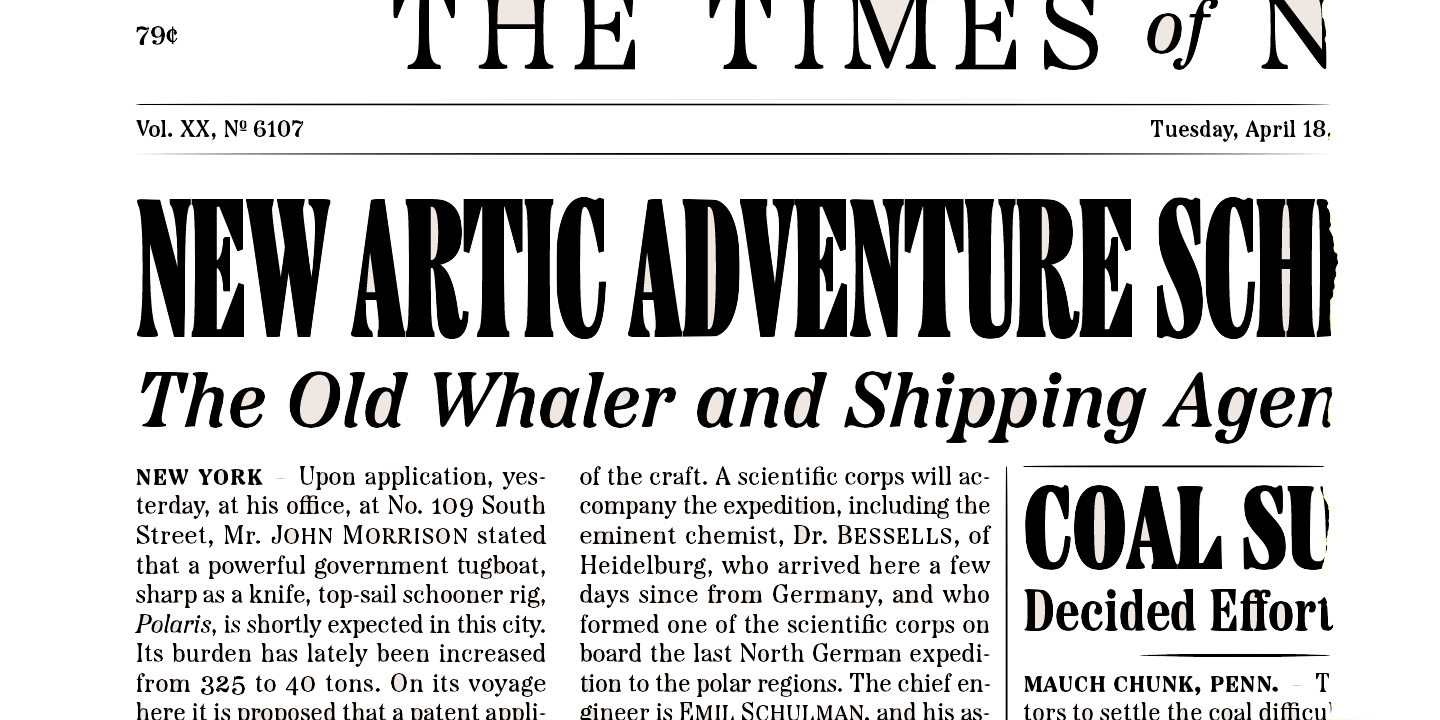 THE TIMES of N
79¢
Vol. XX, Nº 6107
Tuesday, April 18,
NEW ARTIC ADVENTURE SCH
The Old Whaler and Shipping Agen
NEW YORK – Upon application, yes-
terday, at his office, at No. 109 South
Street, Mr. JOHN MORRISON stated
that a powerful government tugboat,
sharp as a knife, top-sail schooner rig,
Polaris, is shortly expected in this city.
Its burden has lately been increased
from 325 to 40 tons. On its voyage
here it is proposed that a patent appli-
of the craft. A scientific corps will ac-
company the expedition, including the
eminent chemist, Dr. BESSELLS, of
Heidelburg, who arrived here a few
days since from Germany, and who
formed one of the scientific corps on
board the last North German expedi-
tion to the polar regions. The chief en-
gineer is EMIL SCHULMAN, and his as-
COAL SU
Decided Effort
MAUCH CHUNK, PENN. – T
tors to settle the coal difficul